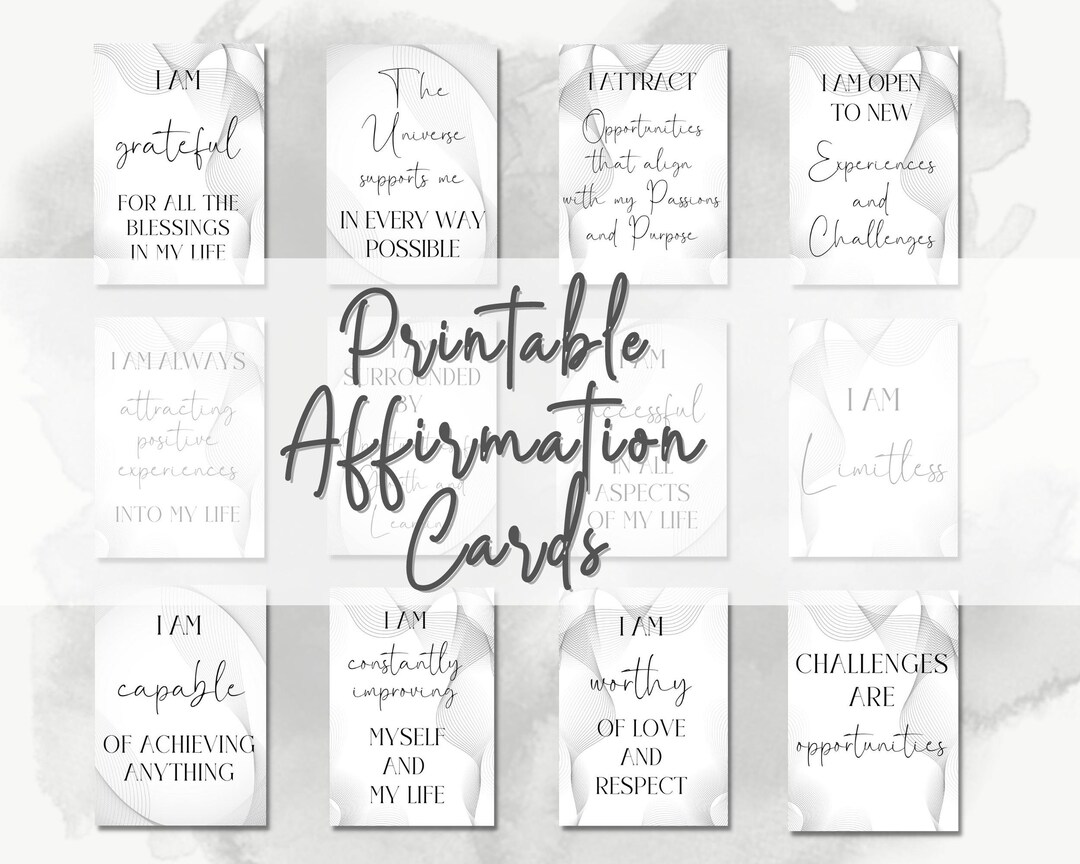 I AM
grateful
FOR ALL THE
BLESSINGS
IN MY LIFE
The
Universe
supports me
IN EVERY WAY
POSSIBLE
I ATTRACT
Opportunities
that align
with my Passions
and Purpose
I AM OPEN
TO NEW
Experiences
and
Challenges
Printable
Affirmation
Cards
I AM ALWAYS
attracting
positive
experiences
INTO MY LIFE
I AM
SURROUNDED
BY
and
I AM
successful
IN ALL
ASPECTS
OF MY LIFE
I AM
Limitless
I AM
capable
OF ACHIEVING
ANYTHING
I AM
constantly
improving
MYSELF
AND
MY LIFE
I AM
worthy
OF LOVE
AND
RESPECT
CHALLENGES
ARE
opportunities